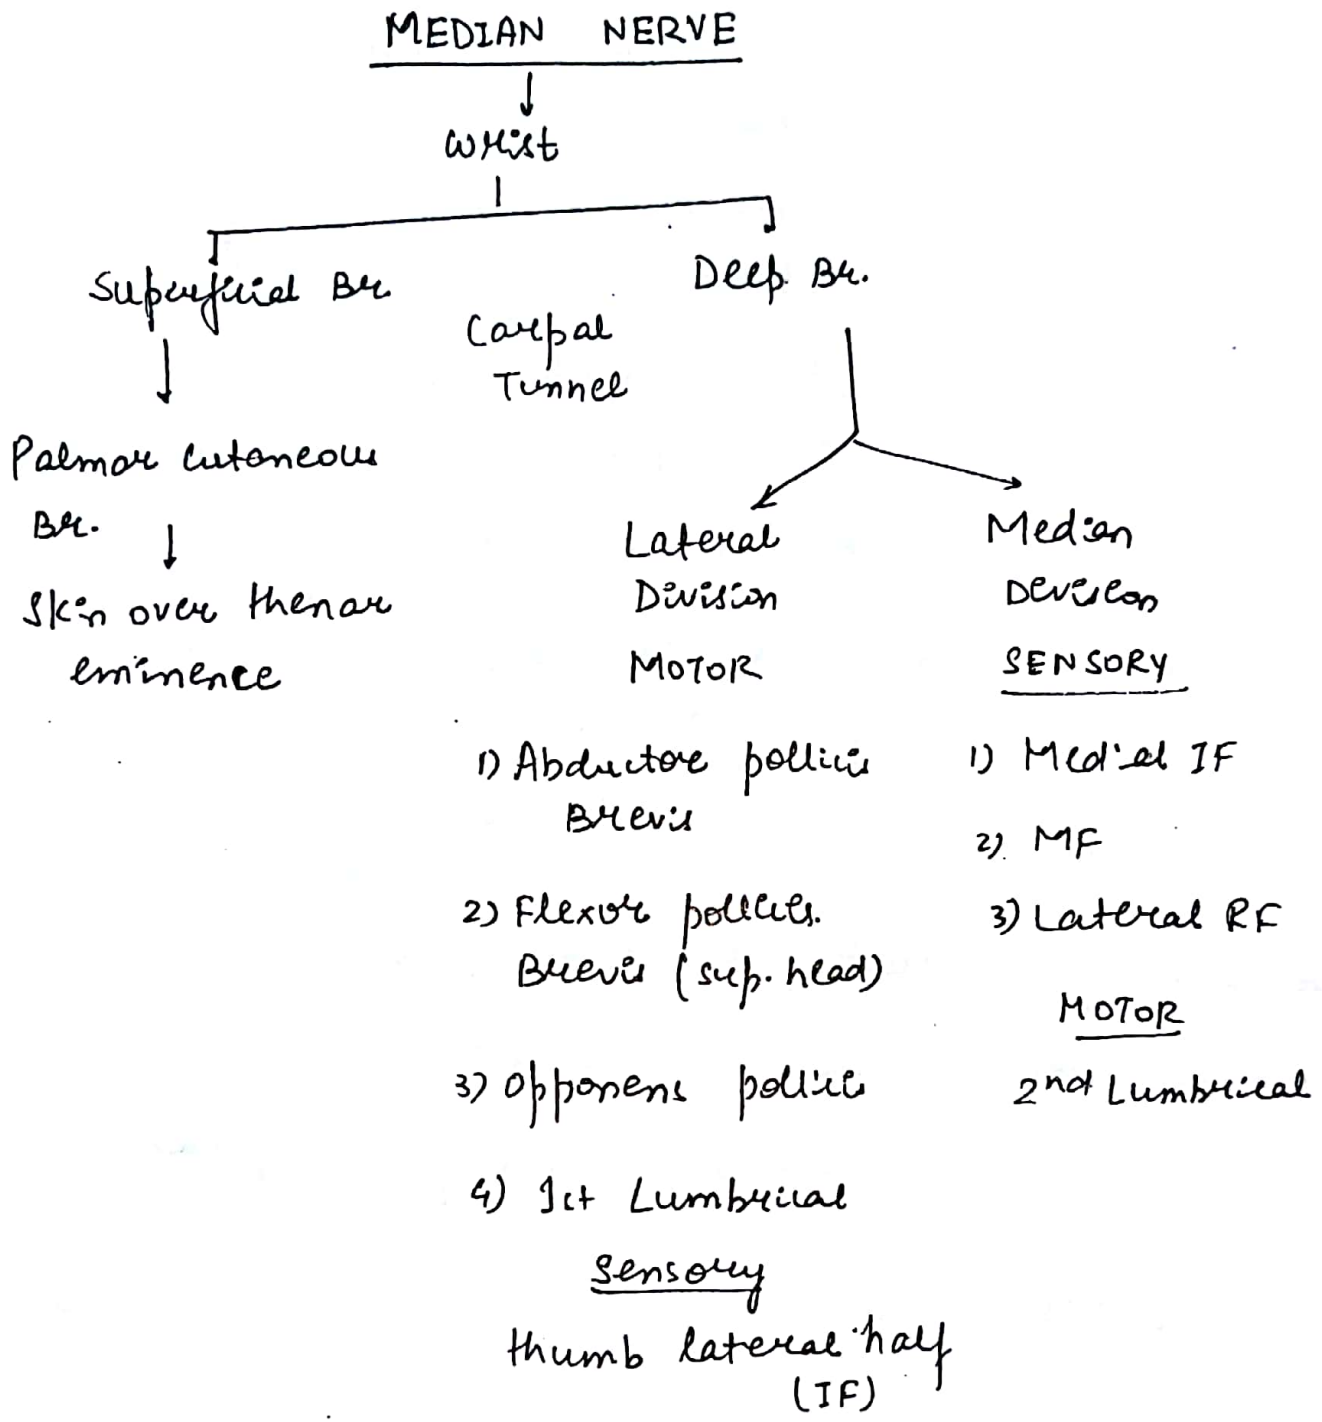 MEDIAN NERVE
Wrist
Superficial Br.
Deep Br.
Carpal
Tunnel
Palmar cutaneous
Br.
Skin over thenar
eminence
Lateral
Division
MOTOR
1) Abductor pollicis
Brevis
2) Flexor pollicis.
Brevis (sup. head)
3) Opponens pollicis
4) 1st Lumbrical
Sensory
thumb lateral half
(IF)
Median
Division
SENSORY
1) Medial IF
2) MF
3) Lateral RF
MOTOR
2nd Lumbrical